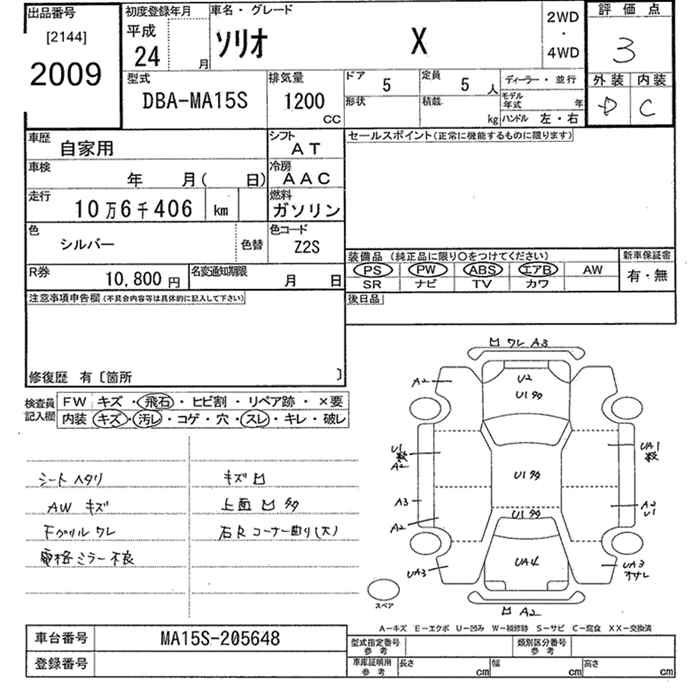 出品番号
[2144]
2009
初度登録年月
平成
24 月
車名・グレード
ソリオ X
2WD
・
4WD
評価点
3
外装 内装
D C
型式
DBA-MA15S
排気量
1200
CC
ドア
5
定員
5 人
ディーラー・並行
形状
積載
kg
モデル年式 年
ハンドル 左・右
車歴
自家用
シフト
AT
車検
年 月( 日)
冷房
AAC
走行
10万6千406 km
燃料
ガソリン
色
シルバー
色替
色コード
Z2S
R券
10,800 円
名変通知期限
月 日
セールスポイント(正常に機能するものに限ります)
装備品 (純正品に限り○をつけてください)
新車保証書
PS PW ABS エアB AW
有・無
SR ナビ TV カワ
後日品
注意事項申告欄(不具合内容等は具体的に記入して下さい)
修復歴 有〔箇所 〕
検査員記入欄
FW キズ・飛石・ヒビ割・リペア跡・×要
内装 キズ・汚レ・コゲ・穴・スレ・キレ・破レ
シートヘタリ
キズ凹
AW キズ
上面凹多
Fグリルワレ
右Rコーナー曲り(大)
電格ミラー不良
凹 ワレ A3
A2
U2
U1多
U1
数
A2
UA1
数
U1多
A3
A2
U1
U1多
A2
UA4
UA3
UA3
オサレ
スペア
凹 A2
A-キズ E-エクボ U-凹み W-補修跡 S-サビ C-腐食 XX-交換済
車台番号
MA15S-205648
登録番号
型式指定番号
参考
類別区分番号
参考
車庫証明用
参考
長さ cm
幅 cm
高さ cm